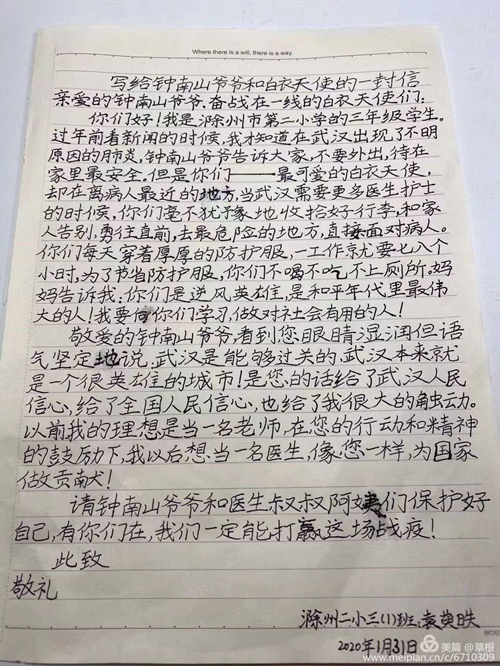 Where there is a will, there is a way.
写给钟南山爷爷和白衣天使的一封信
亲爱的钟南山爷爷.奋战在一线的白衣天使们:
你们好!我是滁州市第二小学的三年级学生。
过年前看新闻的时候,我才知道在武汉出现了不明
原因的肺炎,钟南山爷爷告诉大家,不要外出,待在
家里最安全.但是你们——最可爱的白衣天使,
却在离病人最近的地方,当武汉需要更多医生护士
的时候,你们毫不犹豫地收拾好行李,和家
人告别,勇往直前,去最危险的地方,直接面对病人。
你们每天穿着厚厚的防护服,一工作就要七八个
小时,为了节省防护服,你们不喝不吃,不上厕所,妈
妈告诉我:你们是逆风英雄,是和平年代里最伟
大的人!我要向你们学习,做对社会有用的人!
敬爱的钟南山爷爷,看到您眼睛湿润但语
气坚定地说:武汉是能够过关的,武汉本来就
是一个很英雄的城市!是您的话给了武汉人民
信心,给了全国人民信心,也给了我很大的触动。
以前我的理想是当一名老师,在您的行动和精神
的鼓励下,我以后想当一名医生,像您一样,为国家
做贡献!
请钟南山爷爷和医生叔叔阿姨们保护好
自己,有你们在,我们一定能打赢这场战疫!
此致
敬礼
滁州二小三(1)班:袁英昳
2020年1月31日
美篇 @草根
www.meipian.cn/c/6710309